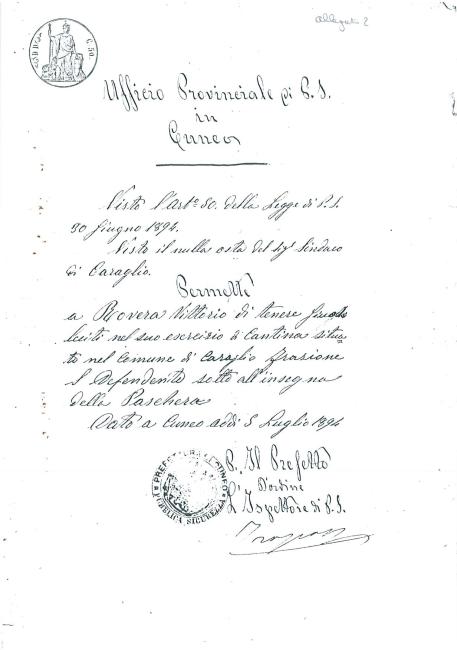 allegato 2
C. 50.
Ufficio Provinciale di P. S.
in
Cuneo
Visto l'Artº 50. della Legge di P. S.
30 Giugno 1894.
Visto il nulla osta del Sigr Sindaco
di Caraglio.
Permette
a Rovera Vittorio di tenere giuochi
leciti nel suo esercizio di Cantina situa-
to nel Comune di Caraglio frazione
S. Defendente sotto all'insegna
della Paschera
Dato a Cuneo addì 5 Luglio 1894
P. Il Prefetto
d'ordine
L'Ispettore di P. S.
PREFETTURA DI CUNEO
PUBBLICA SICUREZZA